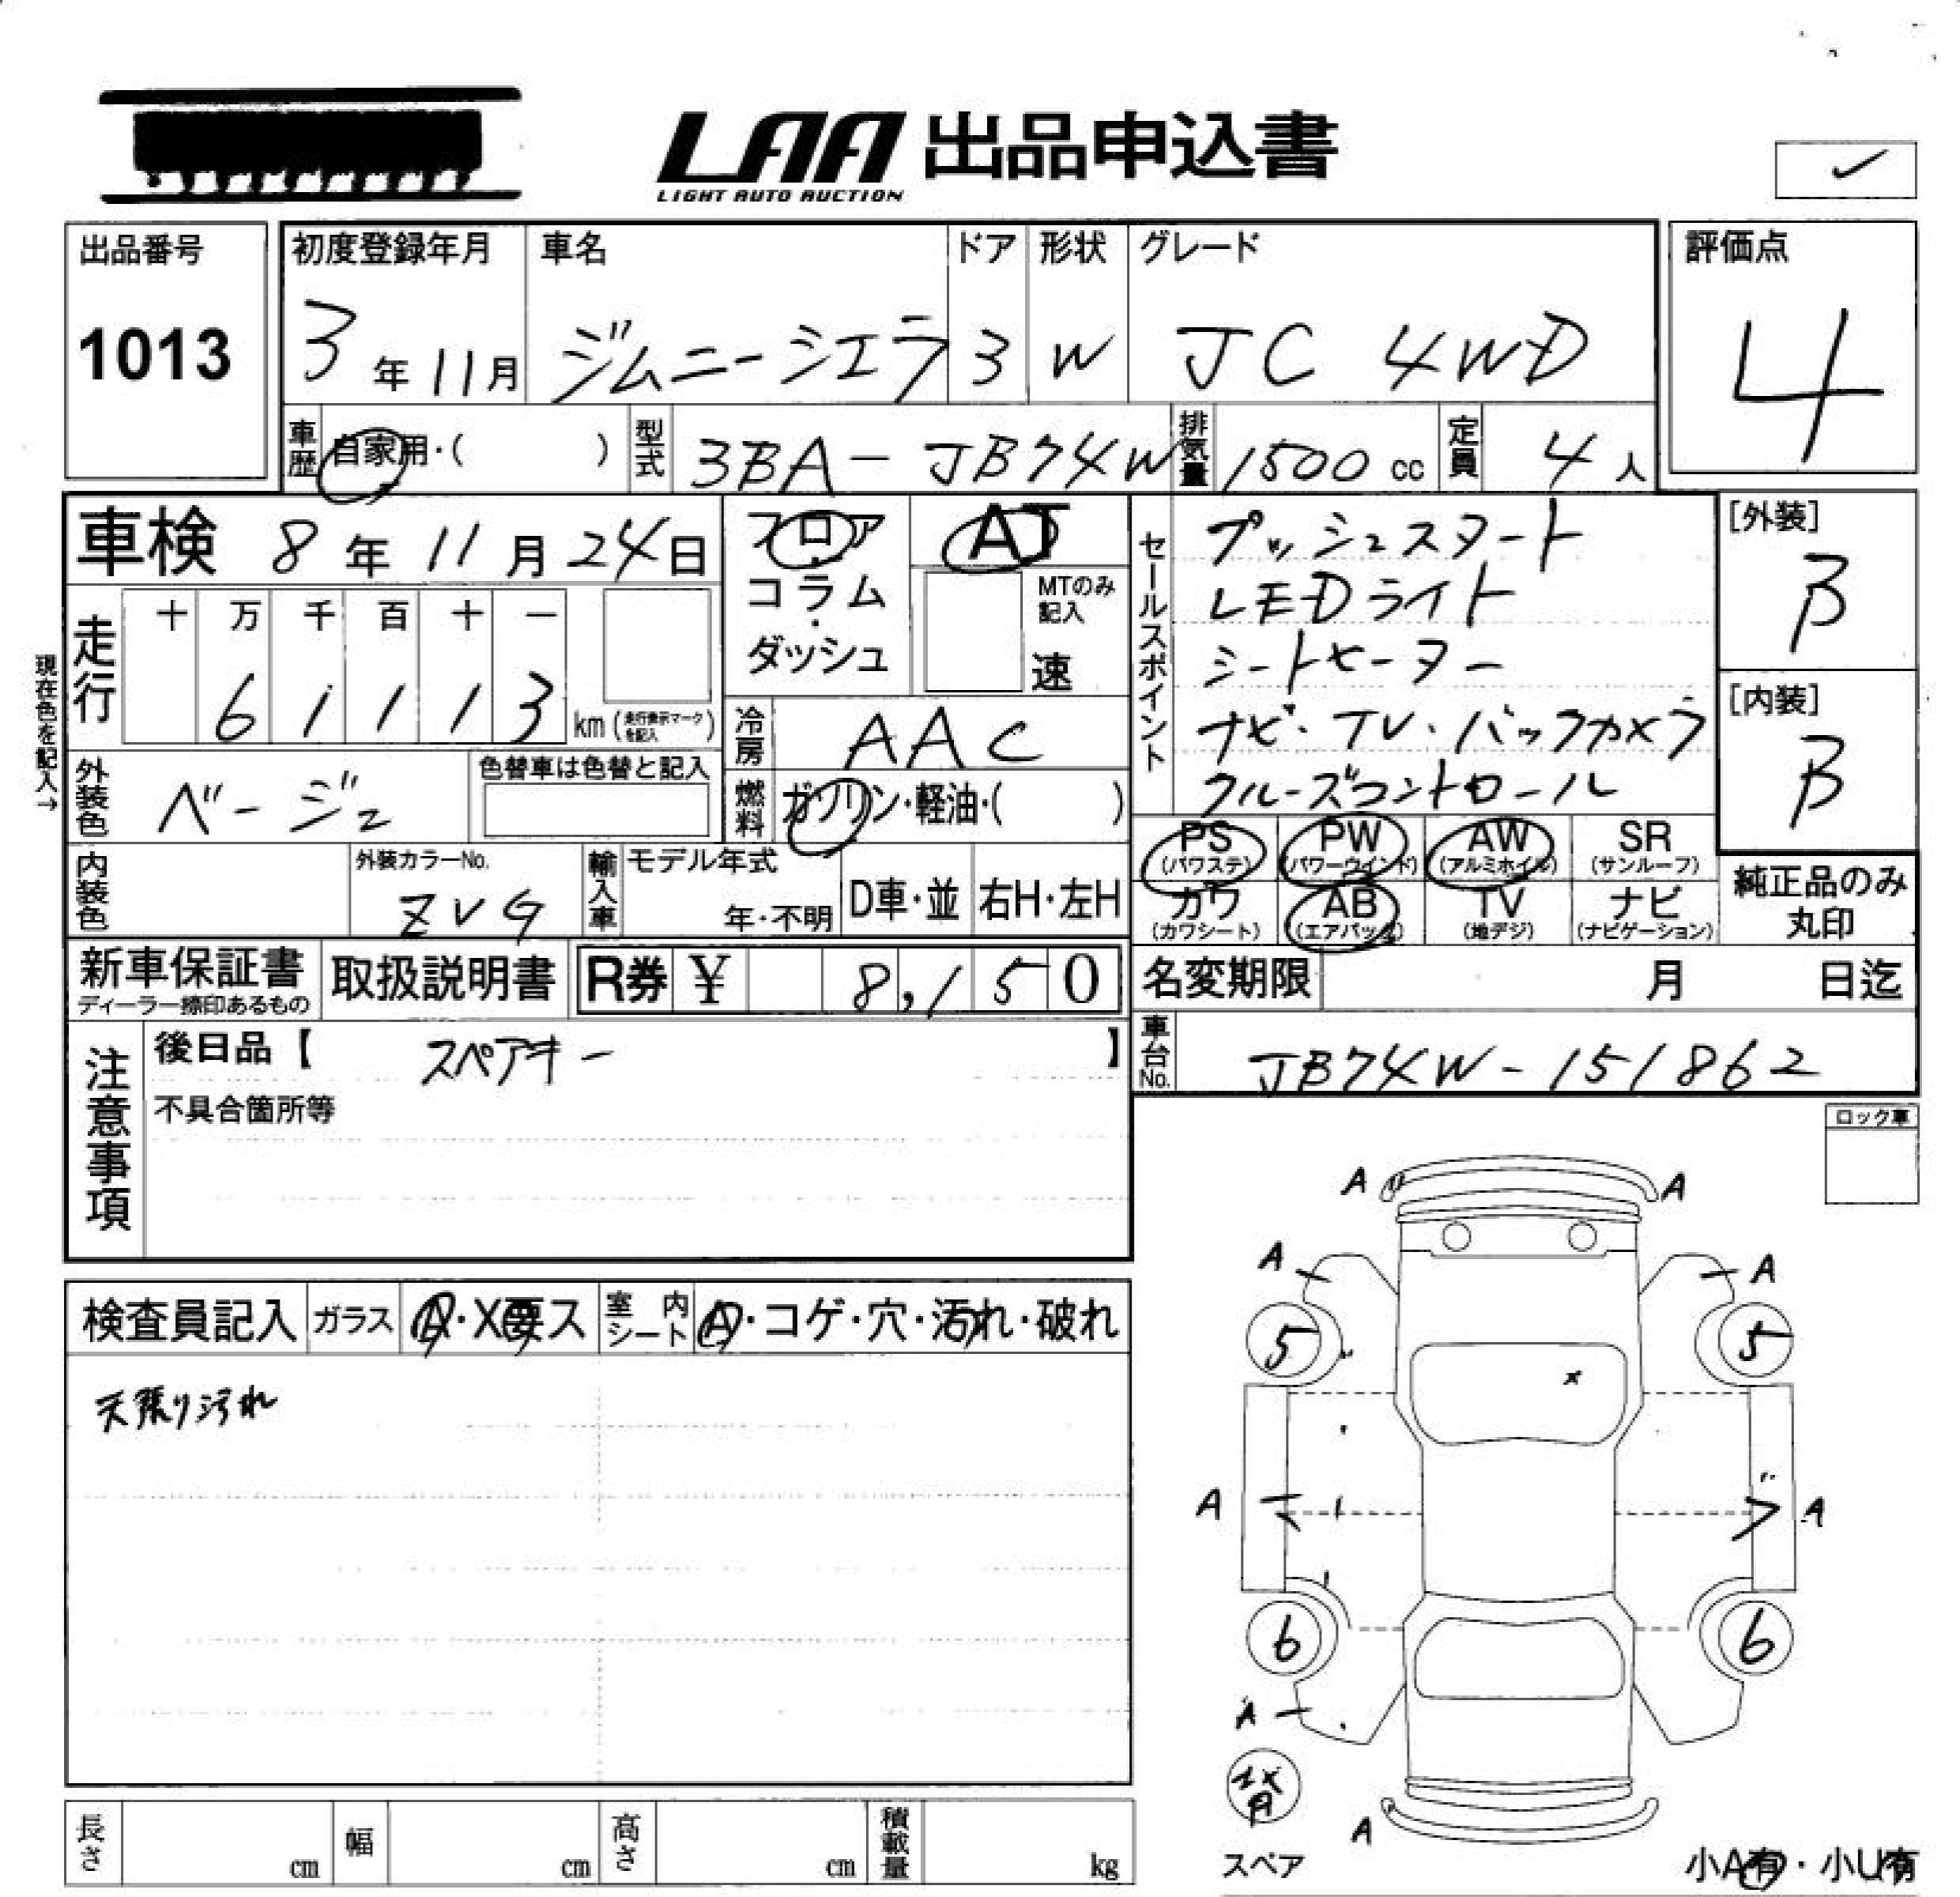 LAA 出品申込書
LIGHT AUTO AUCTION
出品番号
1013
初度登録年月
3年11月
車名
ジムニーシエラ
ドア
3
形状
W
グレード
JC 4WD
評価点
4
車歴
自家用・( )
型式
3BA-JB74W
排気量
1500cc
定員
4人
車検 8年11月24日
フロア・コラム・ダッシュ
AT
MTのみ記入
速
セールスポイント
プッシュスタート
LEDライト
シートヒーター
ナビ・TV・バックカメラ
クルーズコントロール
[外装]
B
[内装]
B
現在色を記入→
走行
十 万 千 百 十 一
6 1 1 1 3 km (走行表示マークを記入)
冷房
AAC
外装色
ベージュ
色替車は色替と記入
燃料
ガソリン・軽油・( )
PS (パワステ)
PW (パワーウインド)
AW (アルミホイル)
SR (サンルーフ)
カワ (カワシート)
AB (エアバック)
TV (地デジ)
ナビ (ナビゲーション)
純正品のみ丸印
内装色
外装カラーNo.
ZVG
輸入車
モデル年式
年・不明
D車・並
右H・左H
新車保証書
ディーラー捺印あるもの
取扱説明書
R券 ¥ 8,150
名変期限 月 日迄
注意事項
後日品【 スペアキー 】
不具合箇所等
車台No.
JB74W-151862
ロック車
検査員記入
ガラス
A・X要ス
室内シート
A・コゲ・穴・汚れ・破れ
天張り汚れ
A A
A A
5 5
x
A A
6 6
A
背
A
スペア
小A有・小U有
長さ cm
幅 cm
高さ cm
積載量 kg